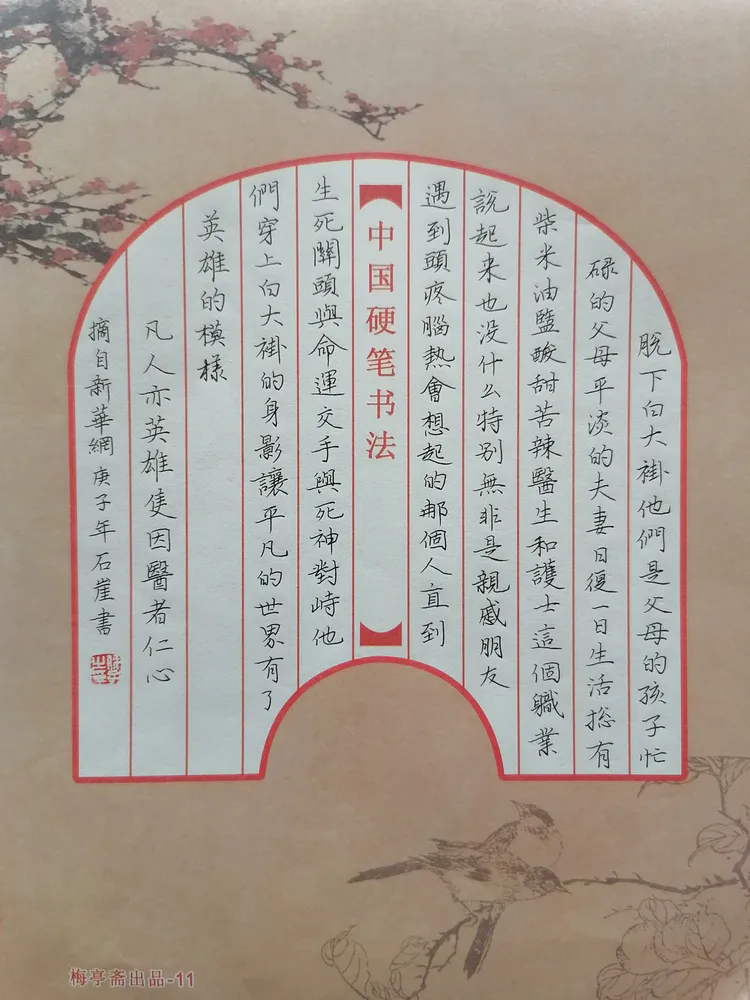 脱下白大褂他們是父母的孩子忙
碌的父母平淡的夫妻日復一日生活總有
柴米油鹽酸甜苦辣醫生和護士這個職業
説起来也没什么特别無非是親戚朋友
遇到頭疼腦熱會想起的那個人直到
中国硬笔书法
生死關頭與命運交手與死神對峙他
們穿上白大褂的身影讓平凡的世界有了
英雄的模樣
凡人亦英雄隻因醫者仁心
摘自新華網庚子年石崖書
梅亭斋出品-11